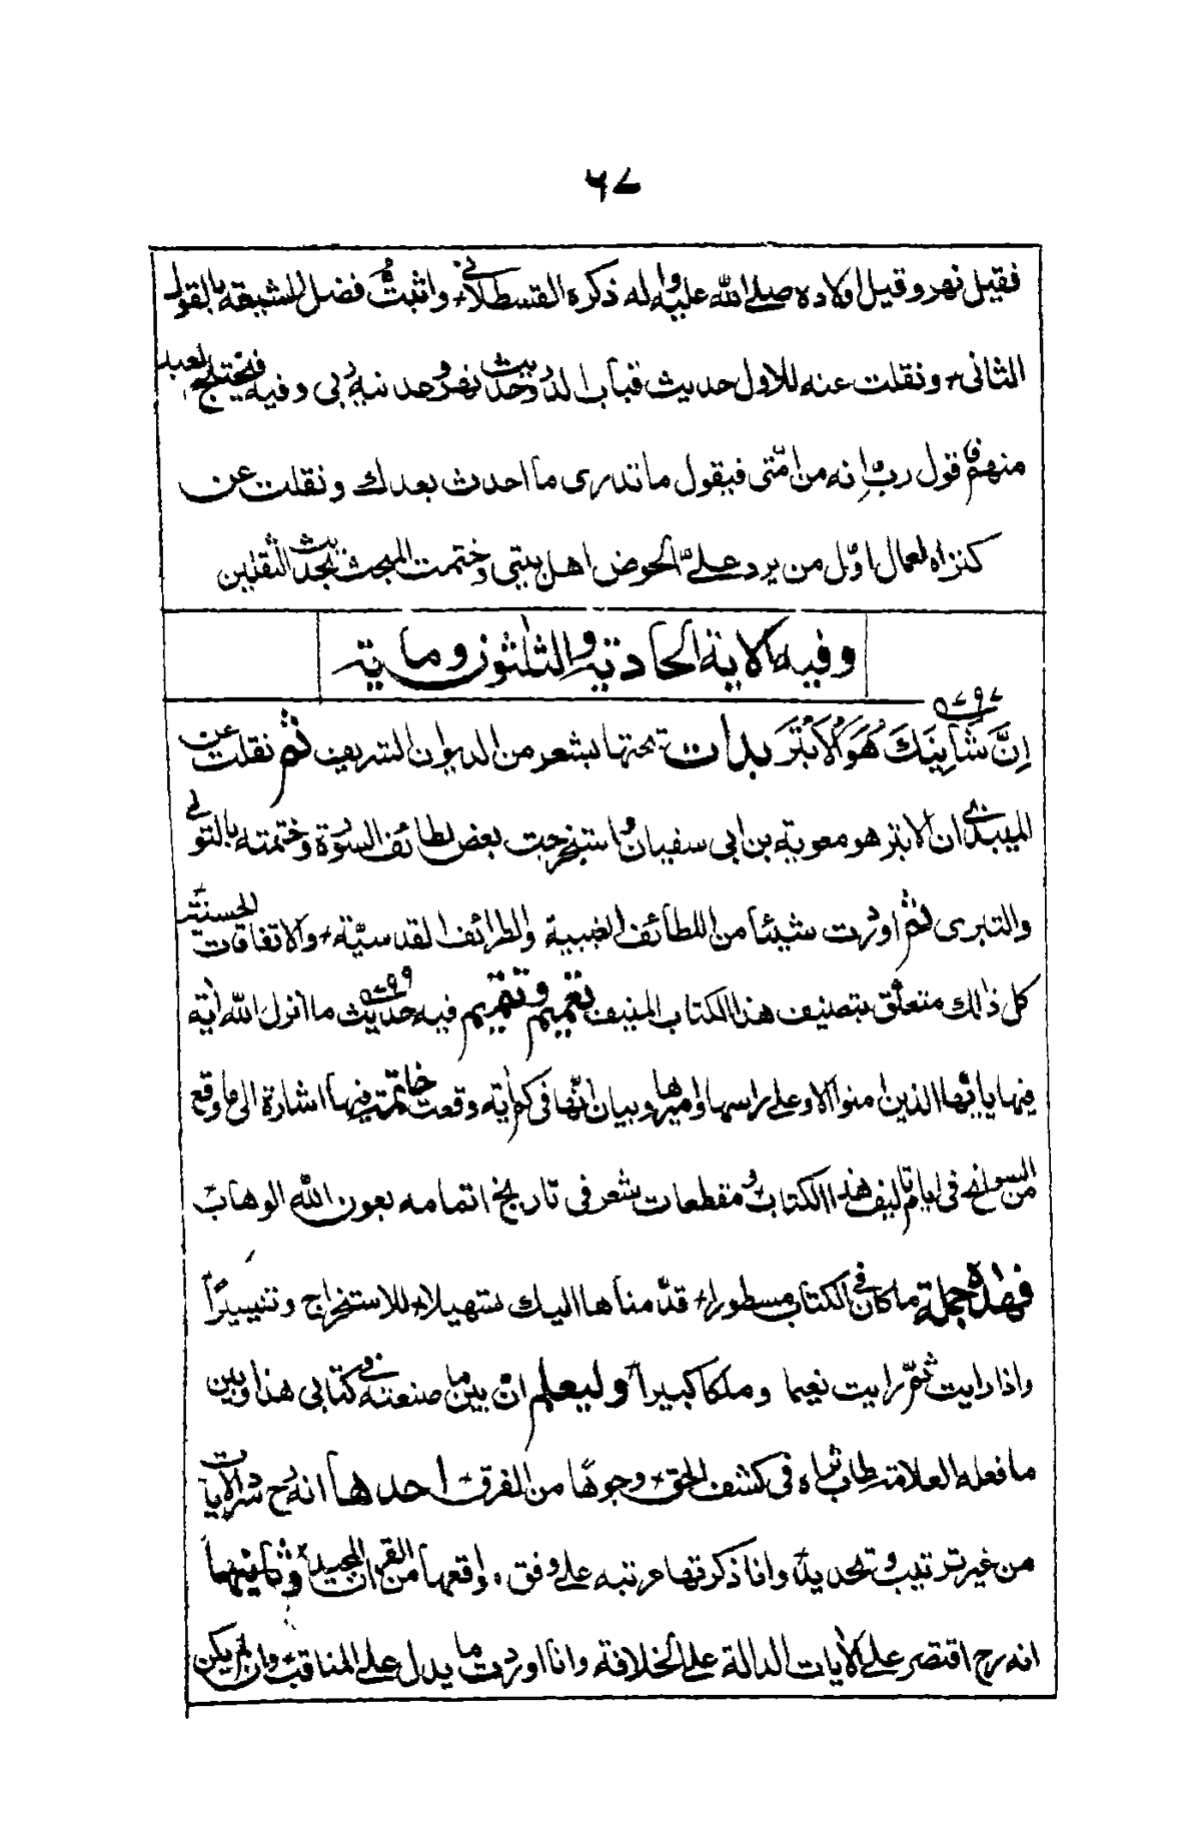 ٦٧
فقيل نهر وقيل اولاده صلى الله عليه واله ذكره القسطلاني+ واثبتُّ فضل الشيعة بالقول
الثاني+ ونقلت عنه للاول حديث قباب الدر وحديث نهر وعدنيه ربي وفيه فيختلج العبد
منهم فاقول ربّ انه من امّتي فيقول ما تدرى ما احدث بعدك ونقلت عن
كنز العمال اوّل من يرد علىّ الحوض اهل بيتي وختمت المبحث بحديث الثقلين
وفيه الاية الحادية والثلثون وماية
٥٧٩٧
اِنَّ شَانِئَكَ هُوَ الْاَبْتَرُ بدات تحتها بشعر من الديوان الشريف ثم نقلت عن
الميبدي ان الابتر هو معوية بن ابي سفيان واستخرجت بعض لطائف السورة وختمته بالتولي
والتبرى ثم اوردت شيئا من اللطائف الغيبية والطرائف القدسيّة+ والاتفاقات الحسنة
كل ذلك متعلّق بتصنيف هذا الكتاب المنيف تعميم وتتميم فيه حديث ما انزل الله اية
٥٧٩٩
فيها يايّها الذين امنوا الا وعلى راسها واميرها وبيان انّها في كم اية وقعت خاتمة فيها اشارة الى ما وقع
من السوانح في ايام تاليف هذا الكتاب ومقطعات شعر في تاريخ اتمامه بعون الله الوهاب
فهذه جملة ما كان في الكتاب مسطورا+ قدّمناها اليك تسهيلا للاستخراج وتيسيرًا
واذا رايت ثمّ رايت نعيما وملكا كبيرا وليعلم ان بين ما صنعته في كتابي هذا وبين
ما فعله العلامة طاب ثراه في كشف الحق+ وجوهًا من الفرق+ احدها انه رح سرد الايات
من غير ترتيب وتحديد+ وانا ذكرتها مرتبه على وفق مواقعها من القران المجيد+ وثانيها
انه رح اقتصر على الايات الدالة على الخلافة وانا اوردت ما يدل على المناقب+ وان لم يكن